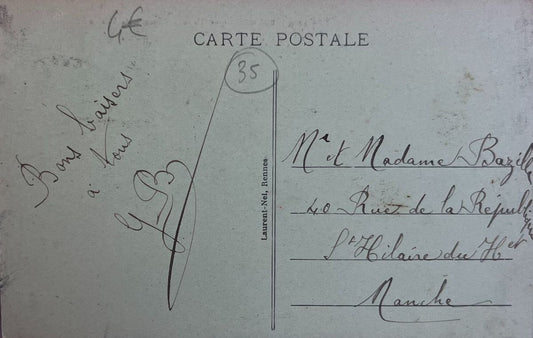 4€
CARTE POSTALE
35
Bons baisers
à tous
GB
Laurent-Nel, Rennes
Mr & Madame Bazille
40 Rue de la République
St Hilaire du Het
Manche